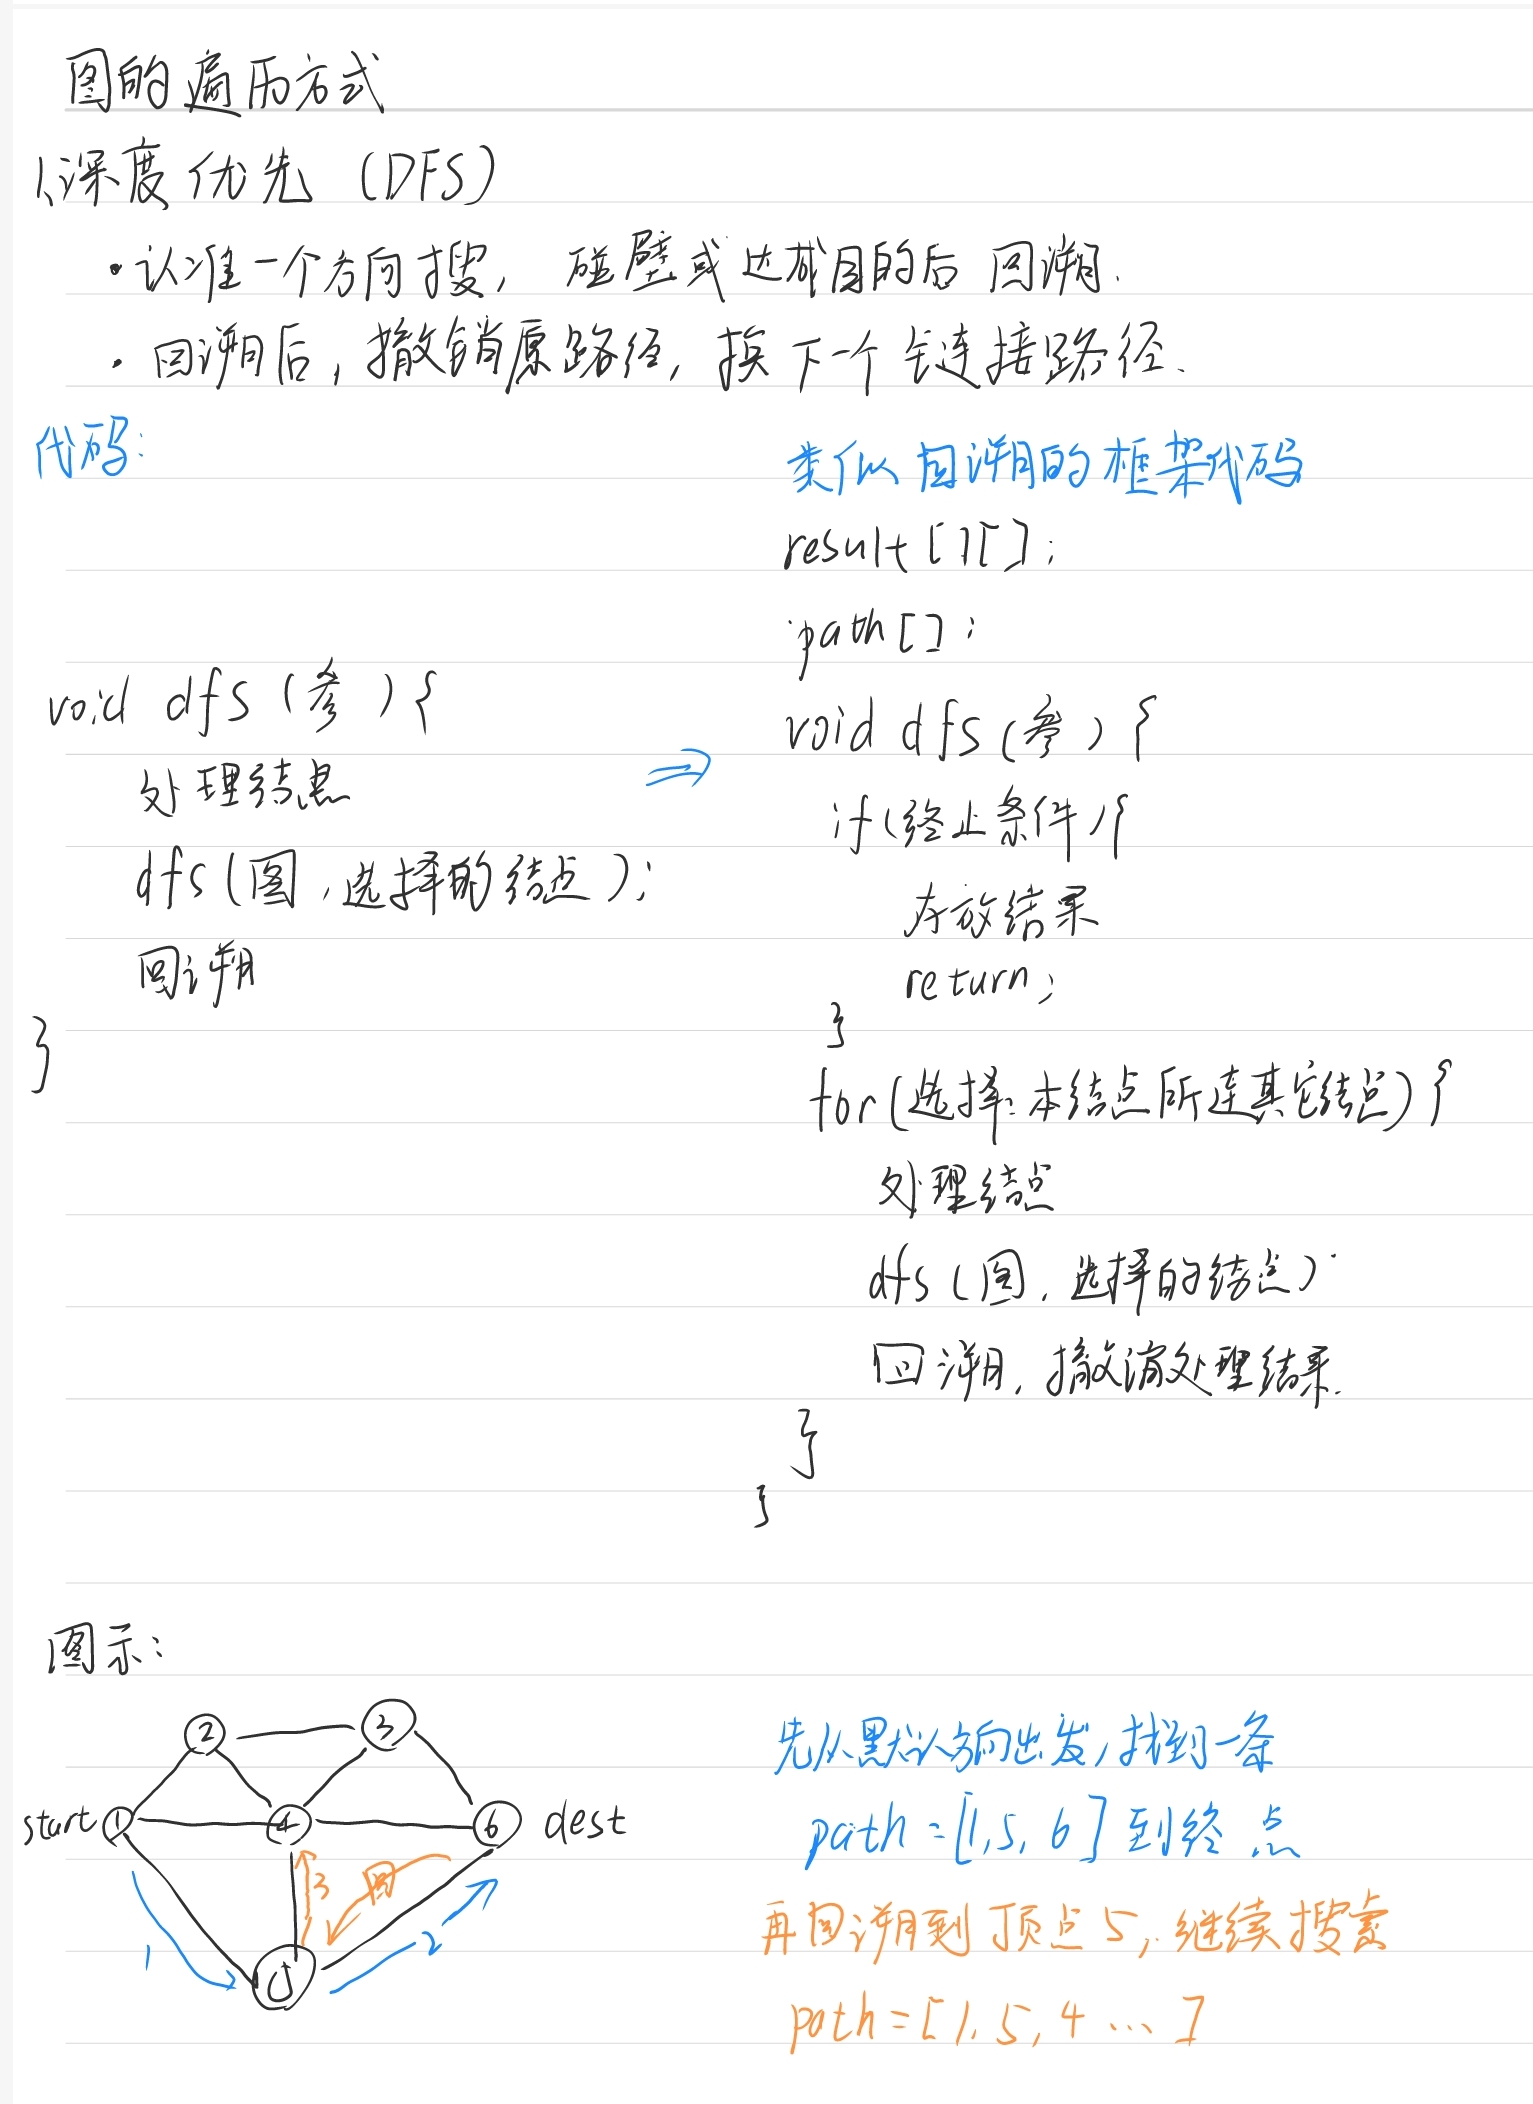 图的遍历方式
1、深度优先 (DFS)
· 认准一个方向搜, 碰壁或达成目的后 回溯.
· 回溯后, 撤销原路径, 换下一个 连接路径.
代码:
void dfs (参) {
处理结点
dfs (图, 选择的结点);
回溯
}
⇒
类似回溯的框架代码
result [][];
path[];
void dfs (参) {
if (终止条件) {
存放结果
return;
}
for (选择: 本结点所连其它结点) {
处理结点
dfs (图, 选择的结点)
回溯, 撤消处理结果.
}
}
图示:
2
3
start 1
4
6 dest
1
2
3
回
先从默认方向出发, 找到一条
path = [1, 5, 6] 到终点
再回溯到顶点5, 继续搜索
path = [1, 5, 4 ... ]